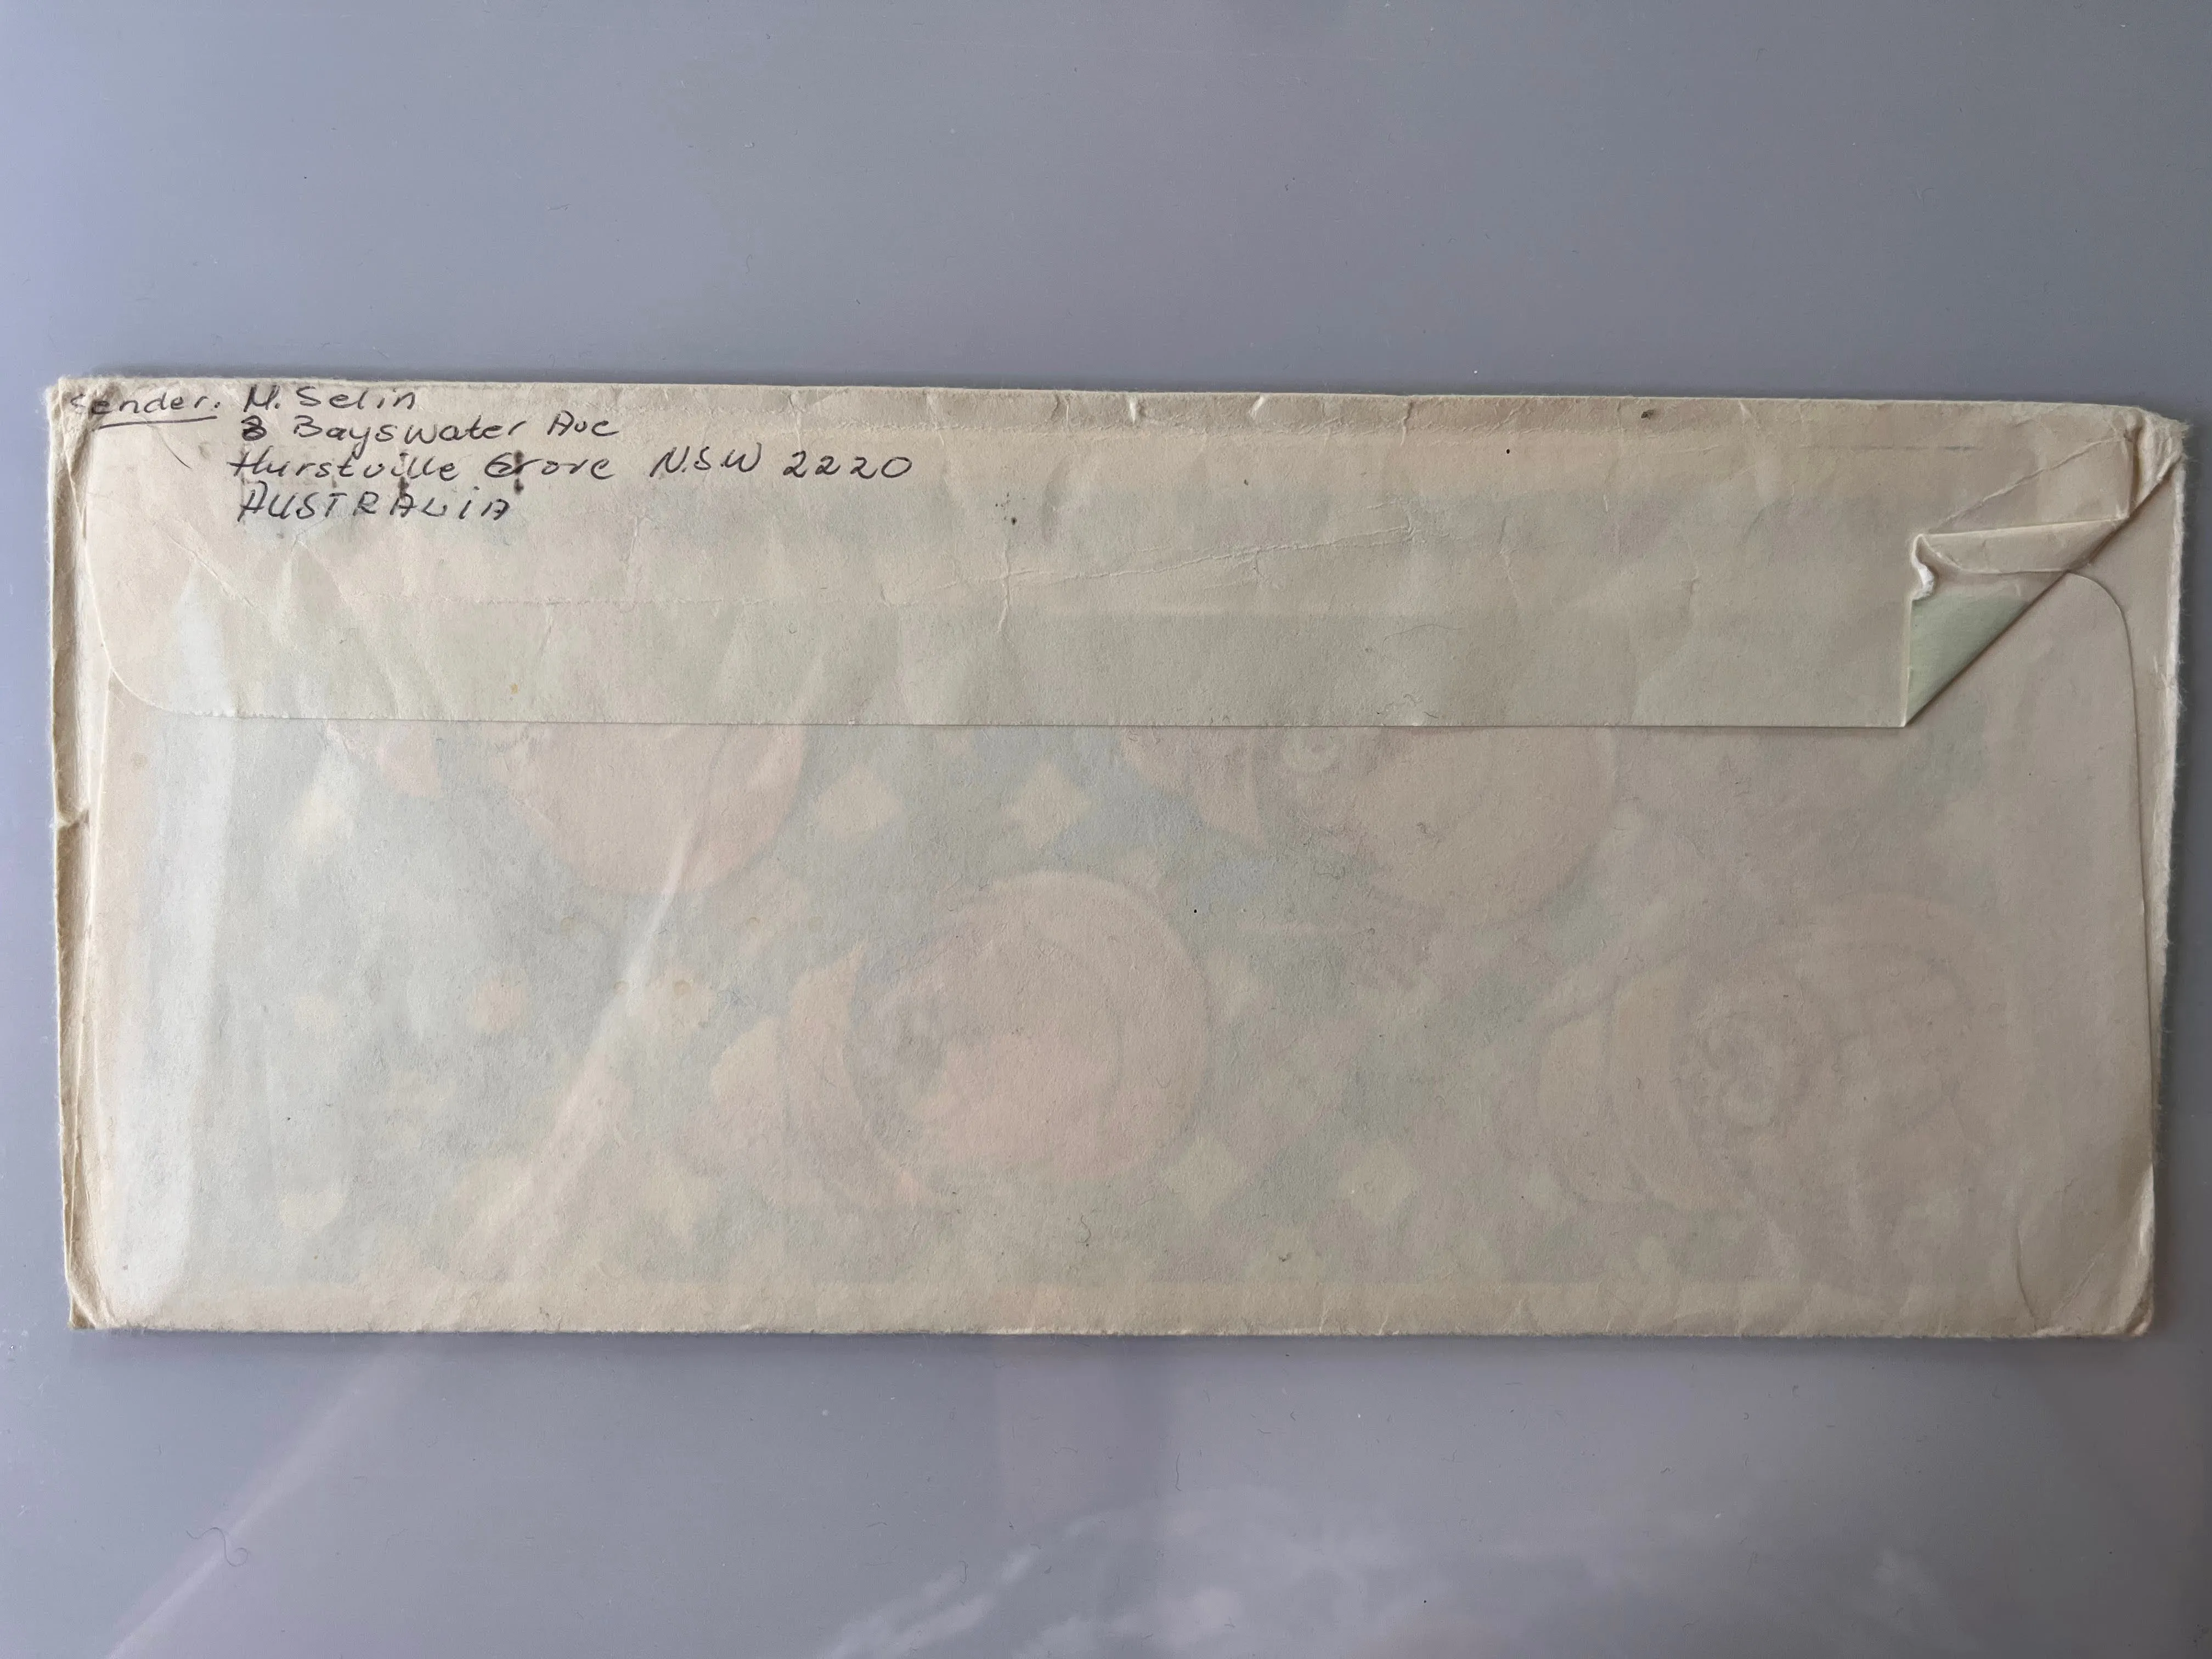 Sender: M. Selin
8 Bayswater Ave
Hurstville Grove N.S.W 2220
AUSTRALiA